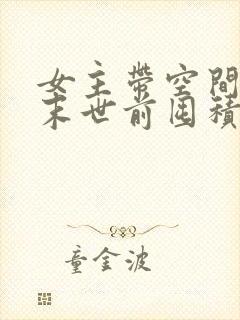 女主带空间
末世前囤积
童金波